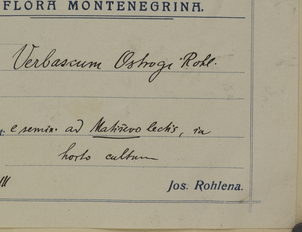 FLORA MONTENEGRINA.
Verbascum Ostrogi Rohl.
e semin. ad Matiševo lectis, in
horto cultum
Jos. Rohlena.